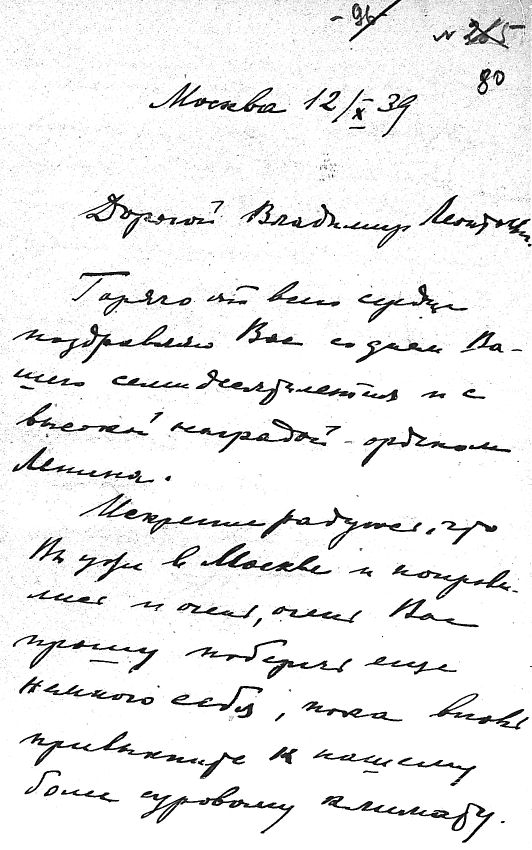 - 96
№ 265
80
Москва 12/X 39
Дорогой Владимир Леонтьевич.
Горячо от всего сердца
поздравляю Вас со днем Ва-
шего семидесятилетия и с
высокой наградой - орденом
Ленина.
Искренне радуюсь, что
Вы уже в Москве и поправи-
лись и очень, очень Вас
прошу поберечь еще
немного себя, пока вновь
привыкните к нашему
более суровому климату.